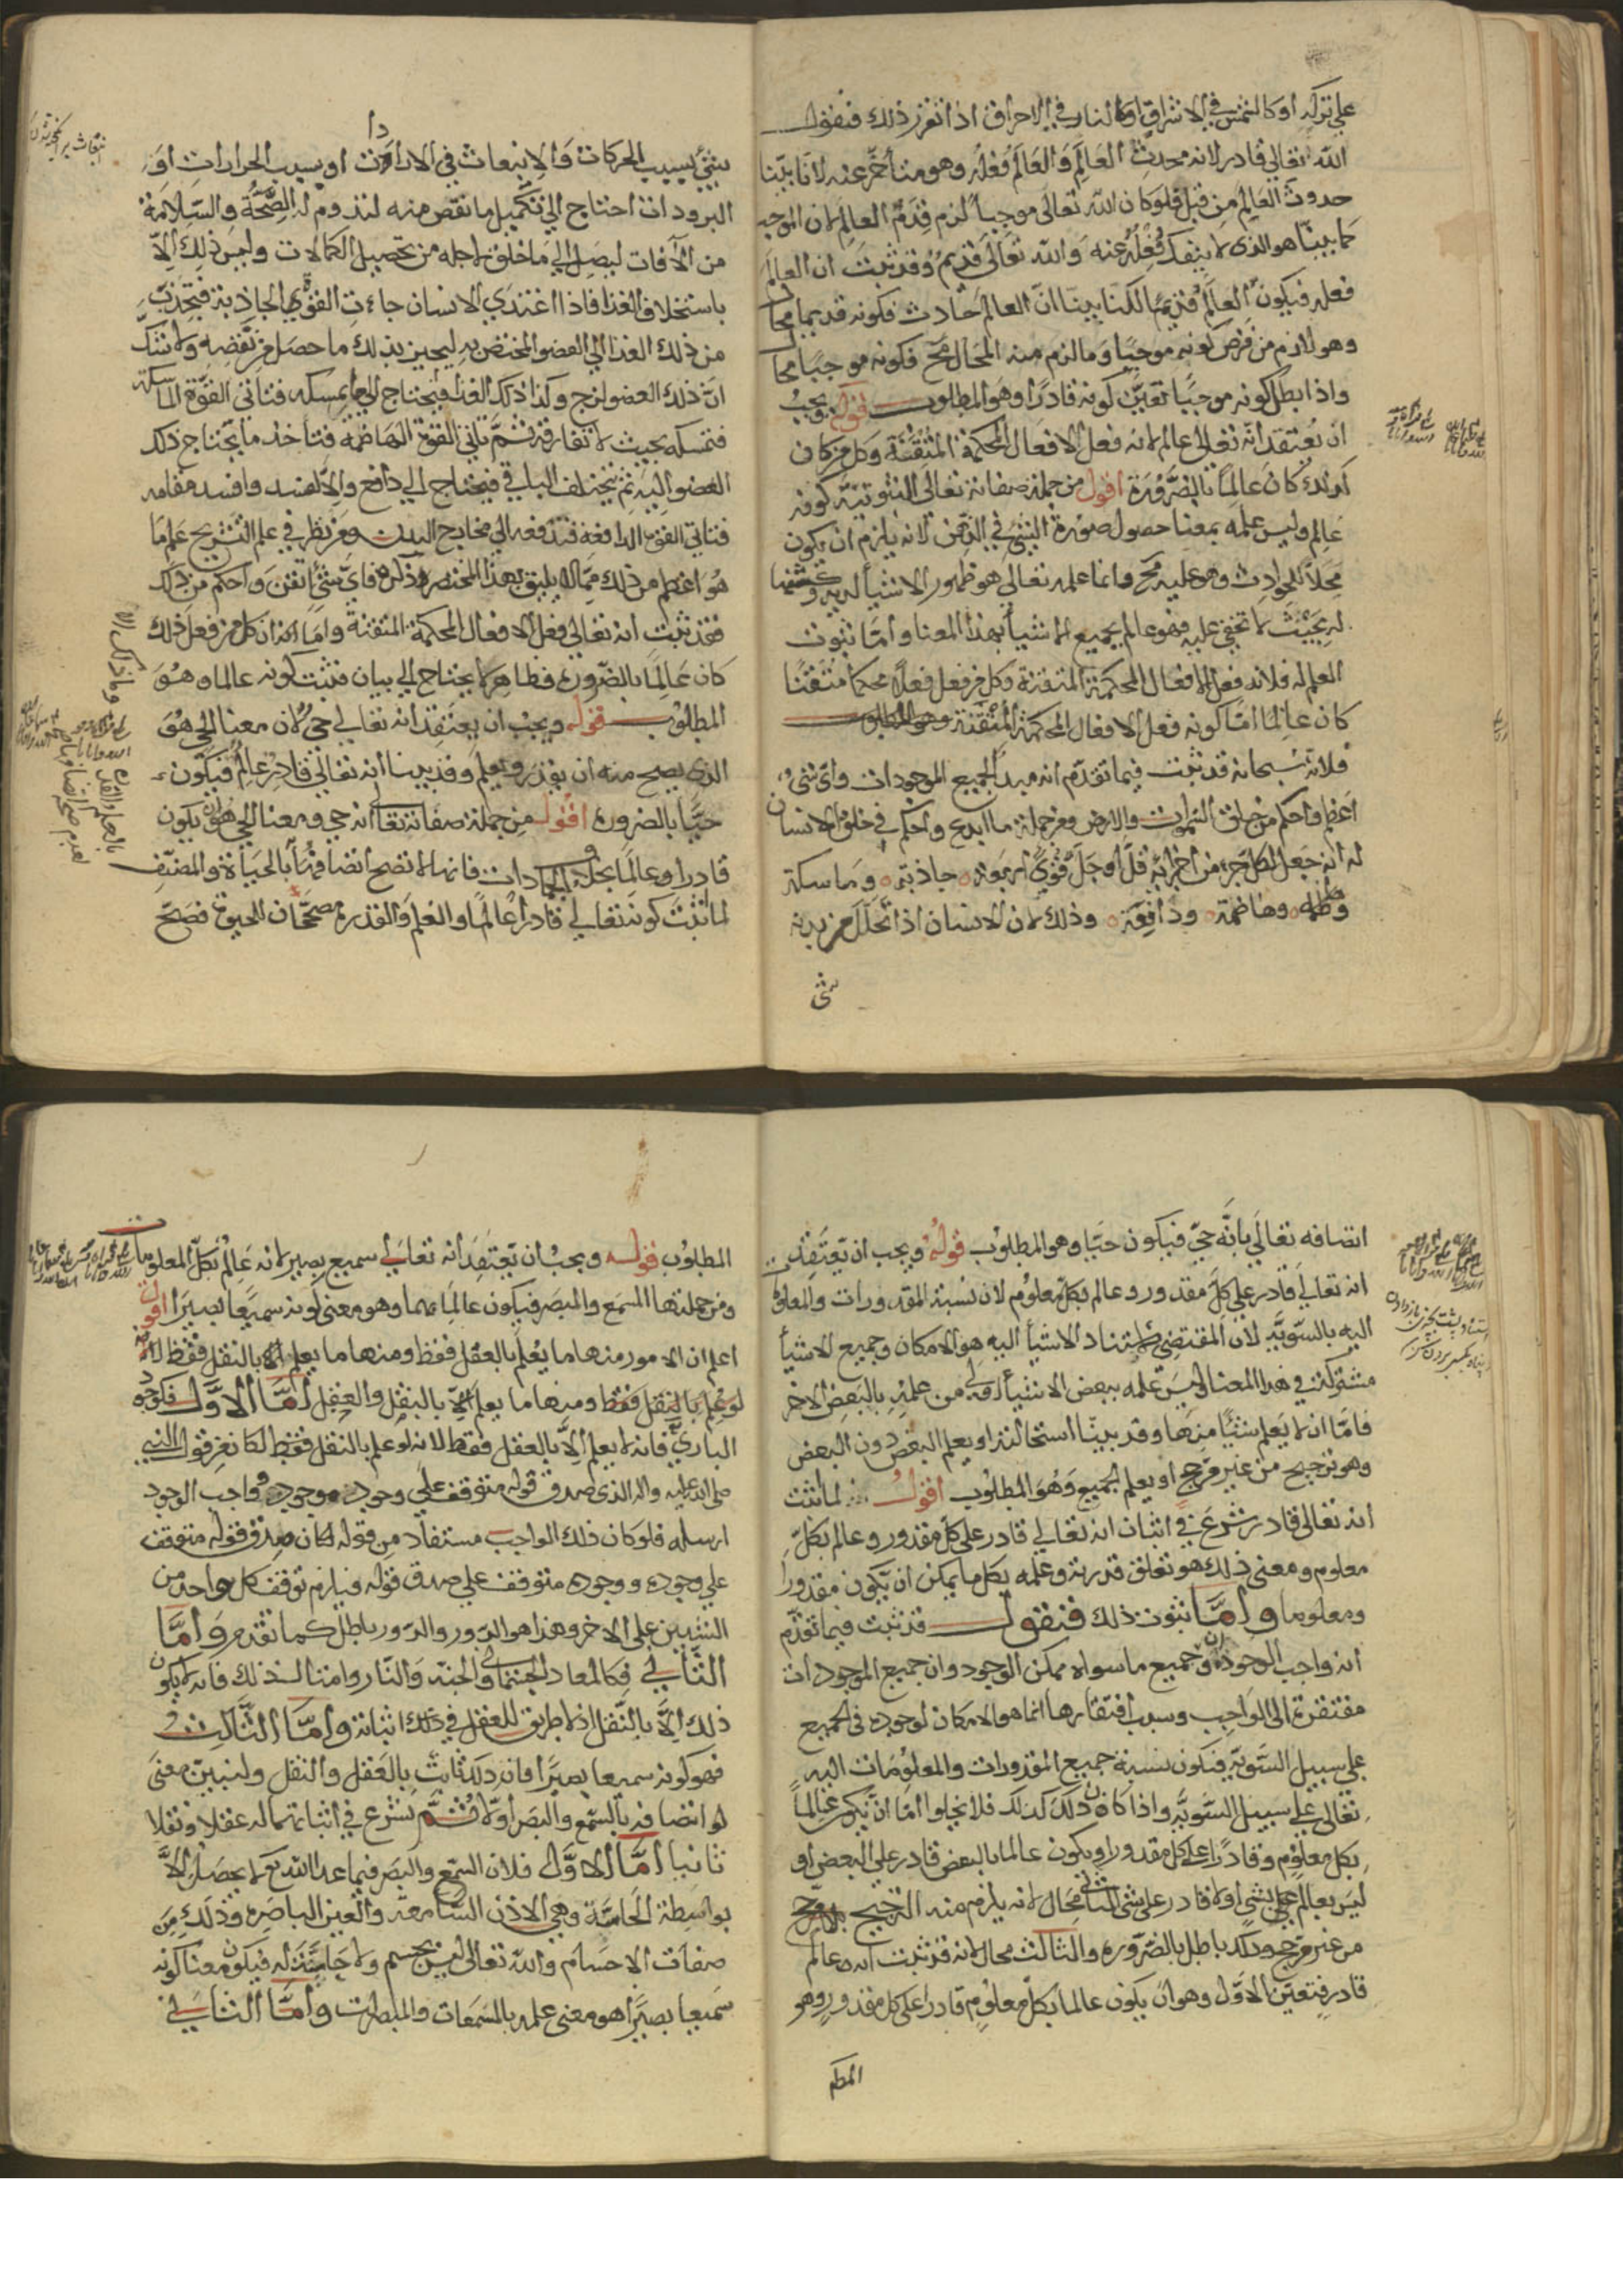 على تركه او كالشمس في الاشراق او كالنار في الاحراق اذا تقرر ذلك فنقول
الله تعالى قادر لانه محدث العالم والعالم فعله وهو متأخر عنه لانا بينا
حدوث العالم من قبل فلو كان الله تعالى موجبا لزم قدم العالم لان الموجب
كما بينا هو الذى لا ينفك فعله عنه والله تعالى قديم وقد ثبت ان العالم
فعله فيكون العالم قديما لكنا بينا ان العالم حادث فكونه قديما محال
وهو لازم من فرض كونه موجبا وما لزم منه المحال مح فكونه موجبا محال
واذا بطل كونه موجبا تعين كونه قادرا وهو المطلوب قوله ويجب
ان يعتقد انه تعالى عالم لانه فعل الافعال المحكمة المتقنة وكل من كان
كذلك كان عالما بالضرورة اقول من جملة صفاته تعالى الثبوتية كونه
عالم وليس علمه بمعنا حصول صورة الشئ في الذهن لانه يلزم ان يكون
محلا للحوادث وهو عليه مح وانما علمه تعالى هو ظهور الاشيأ لديه وكشفها
له بحيث لا تخفى عليه فهو عالم بجميع الاشيأ بهذا المعنا واما ثبوت
العلم له فلانه فعل الافعال المحكمة المتقنة وكل من فعل فعلا محكما متقنا
كان عالما اما كونه فعل الافعال المحكمة المتقنة وهو المطلوب
فلانه سبحانه قد ثبت فيما تقدم انه مبدا لجميع الموجودات واى شئ
اعظم واحكم من خلق السموات والارض ومن جملة ما ابدع واحكم في خلق الانسان
له انه جعل لكل جزء من اجزائه قل او جل قوى اربعة جاذبة وماسكة
وهاضمة ودافعة وذلك لان الانسان اذا تحلل من بدنه
شى
شئ بسبب الحركات والانبعاث في الارادات او بسبب الحرارات او
البرودات احتاج الى تكميل ما نقص منه لتدوم له الصحة والسلامة
من الآفات ليصل الى ما خلق لاجله من تحصيل الكمالات وليس ذلك الا
باستخلاف الغذا فاذا اغتذى الانسان جاءت القوى الجاذبة فتجذب
من ذلك الغذا الى العضو المختص به ليجبر بذلك ما حصل من نقصه ولا شك
ان ذلك العضو لزج وكذا ذلك الغذا فيحتاج الى ما يمسكه فتاتى القوة الماسكة
فتمسكه بحيث لا تفارقه ثم تاتى القوة الهاضمة فتأخذ ما يحتاج ذلك
العضو اليه ثم يتخلف الباقي فيحتاج الى دافع والا لفسد وافسد مقامه
فتاتى القوة الدافعة فتدفعه الى مخارج البدن ومن نظر في علم التشريح علم ما
هو اعظم من ذلك مما لا يليق بهذا المختصر ذكره فاى شئ اتقن واحكم من ذلك
فقد ثبت انه تعالى فعل الافعال المحكمة المتقنة واما انه ان كل من فعل ذلك
كان عالما بالضرورة فظاهر لا يحتاج الى بيان فثبت كونه عالما وهو
المطلوب قوله ويجب ان يعتقد انه تعالى حى لان معنا الحى هو
الذى يصح منه ان يقدر ويعلم وقد بينا انه تعالى قادر عالم فيكون
حيا بالضرورة اقول من جملة صفاته تعالى انه حى ومعنا الحى هو ان يكون
قادرا وعالما بخلاف الجمادات فانها لا تصح اتصافها بالحياة والمصنف
لما ثبت كونه تعالى قادرا عالما والعلم والقدرة مصححان للحيوة فصح
اتصافه تعالى بانه حى فيكون حيا وهو المطلوب قوله ويجب ان يعتقد
انه تعالى قادر على كل مقدور وعالم بكل معلوم لان نسبة المقدورات والمعلومات
اليه بالسوية لان المقتضى لاستناد الاشيأ اليه هو الامكان وجميع الاشيأ
مشتركة في هذا المعنا وليس علمه ببعض الاشيأ اولى من علمه بالبعض الاخر
فاما ان لا يعلم شيئا منها وقد بينا استحالته او يعلم البعض دون البعض
وهو ترجيح من غير مرجح او يعلم الجميع وهو المطلوب اقول لما ثبت
انه تعالى قادر شرع في اثبات انه تعالى قادر على كل مقدور وعالم بكل
معلوم ومعنى ذلك هو تعلق قدرته وعلمه بكل ما يمكن ان يكون مقدورا
ومعلوما واما ثبوت ذلك فنقول قد ثبت فيما تقدم
انه واجب الوجود وان جميع ما سواه ممكن الوجود وان جميع الموجودات
مفتقرة الى الواجب وسبب افتقارها انما هو الامكان لوجوده في الجميع
على سبيل السوية فتكون نسبة جميع المقدورات والمعلومات اليه
تعالى على سبيل السوية واذا كان ذلك كذلك فلا يخلوا اما ان يكون عالما
بكل معلوم وقادرا على كل مقدور او يكون عالما بالبعض قادر على البعض او
ليس بعالم بشئ ولا قادر على شئ الثانى محال لانه يلزم منه الترجيح
من غير مرجح وذلك باطل بالضرورة والثالث محال لانه قد ثبت انه عالم
قادر فتعين الاول وهو ان يكون عالما بكل معلوم قادرا على كل مقدور وهو
المطلوب قوله ويجب ان يعتقد انه تعالى سميع بصير لانه عالم بكل المعلومات
ومن جملتها السمع والمبصر فيكون عالما بهما وهو معنى كونه سميعا بصيرا اقول
اعلم ان الامور منها ما يعلم بالعقل فقط ومنها ما يعلم الا بالنقل فقط
لو علم بالنقل فقط ومنها ما يعلم بالنقل والعقل اما الاول فكوجود
البارى فانه لا يعلم الا بالعقل فقط لانه لو علم بالنقل فقط لكان عن قول النبى
صلى الله عليه واله الذى صدق قوله متوقف على وجود موجود واجب الوجود
ارسله فلو كان ذلك الواجب مستفاد من قوله لكان صدق قوله متوقف
على وجوده ووجوده متوقف على صدق قوله فيلزم توقف كل واحد من
الشيئين على الاخر وهذا هو الدور والدور باطل كما تقدم واما
الثانى فكالمعاد الجسمانى والجنة والنار وامثال ذلك فانه لا يكون
ذلك الا بالنقل اذ لا طريق للعقل في ذلك اثباته واما الثالث
فهو كونه سميعا بصيرا فان ذلك ثابت بالعقل والنقل ولنبين معنى
اتصافه بالسمع والبصر اولا ثم نشرع في اثباتهما له عقلا ونقلا
ثانيا اما الاول فلان السمع والبصر فيما عدا الله تع لا يحصل الا
بواسطة الحاسة وهى الاذن السامعة والعين الباصرة وذلك من
صفات الاجسام والله تعالى ليس بجسم ولا حاسة له فيكون معنا كونه
سميعا بصيرا هو معنى علمه بالسمعات والمبصرات واما الثانى